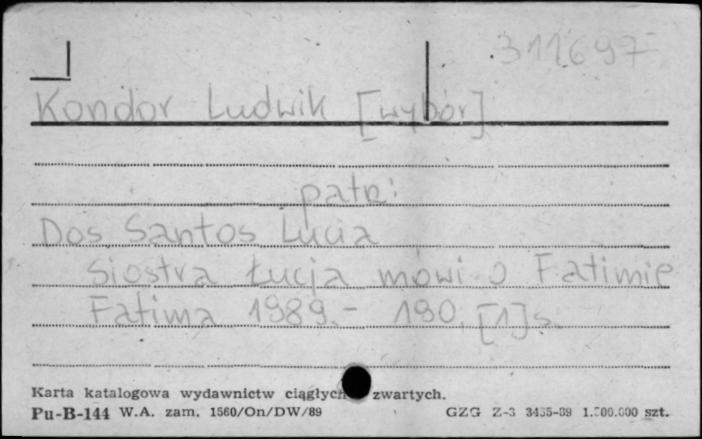 311697
Kondor Ludwik [wybór]
patrz:
Dos Santos Lucia
Siostra Łucja mówi o Fatimie
Fatima 1989.- 190,[1]s.
Karta katalogowa wydawnictw ciągłych zwartych.
Pu-B-144 W.A. zam. 1560/On/DW/89 GZG Z-3 3435-89 1.500.000 szt.